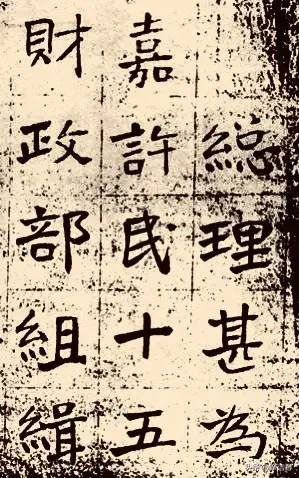 総理甚為
嘉許民十五
財政部組緝